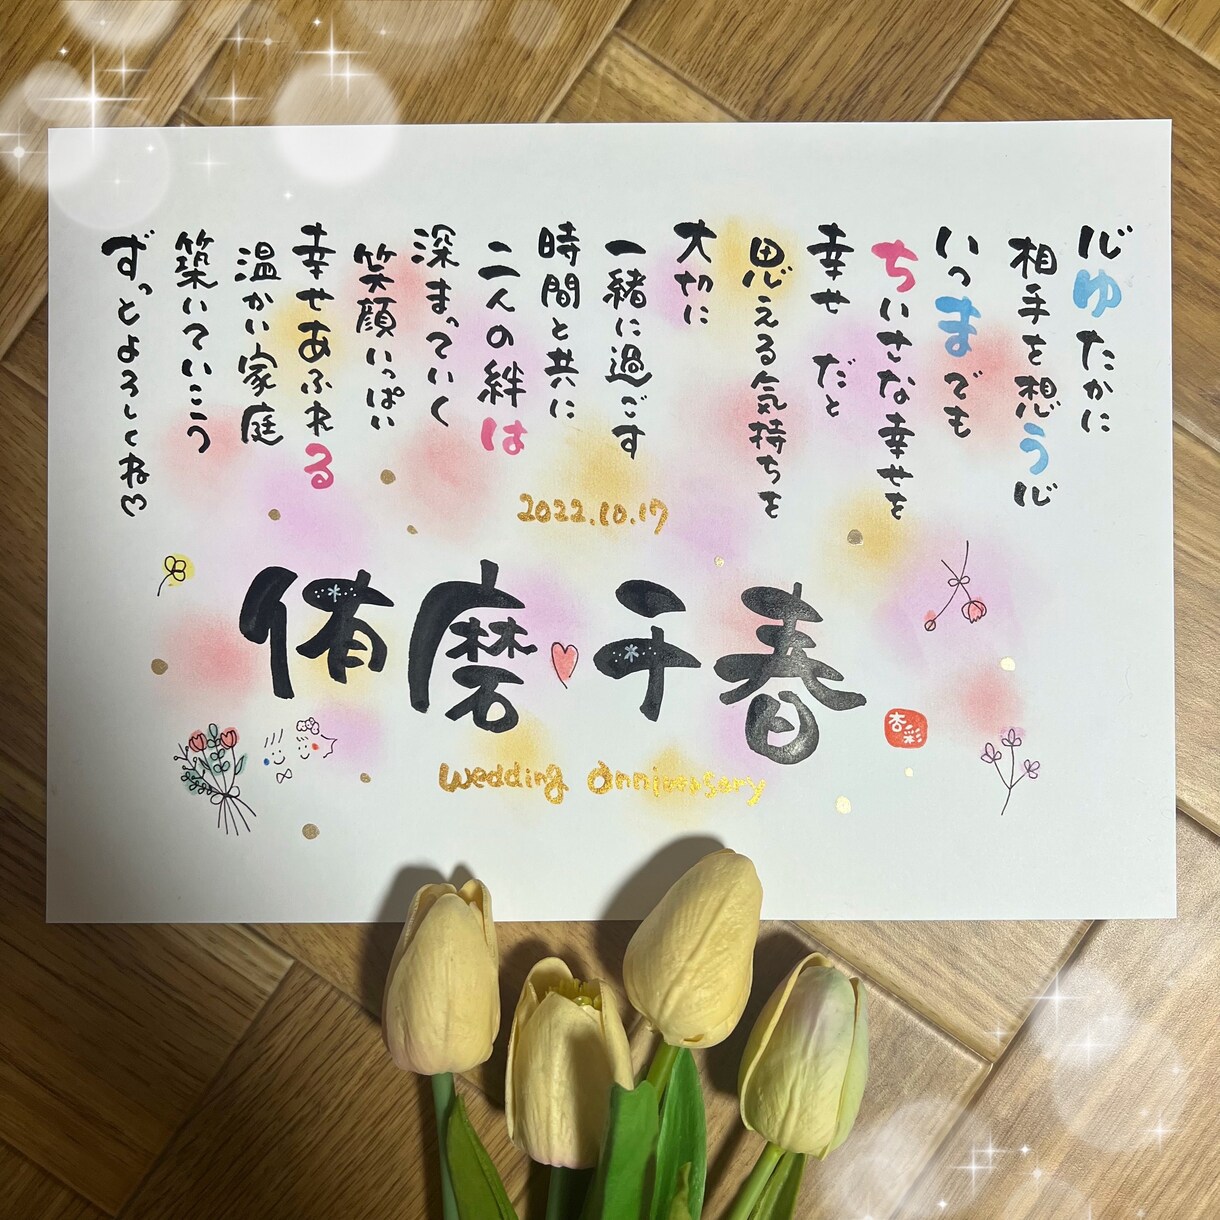 心ゆたかに
相手を想う心
いつまでも
ちいさな幸せを
幸せ だと
思える気持ちを
大切に
一緒に過ごす
時間と共に
二人の絆は
深まっていく
笑顔いっぱい
幸せあふれる
温かい家庭
築いていこう
ずっとよろしくね♡
2022.10.17
侑磨♡千春
杏彩
Wedding Anniversary